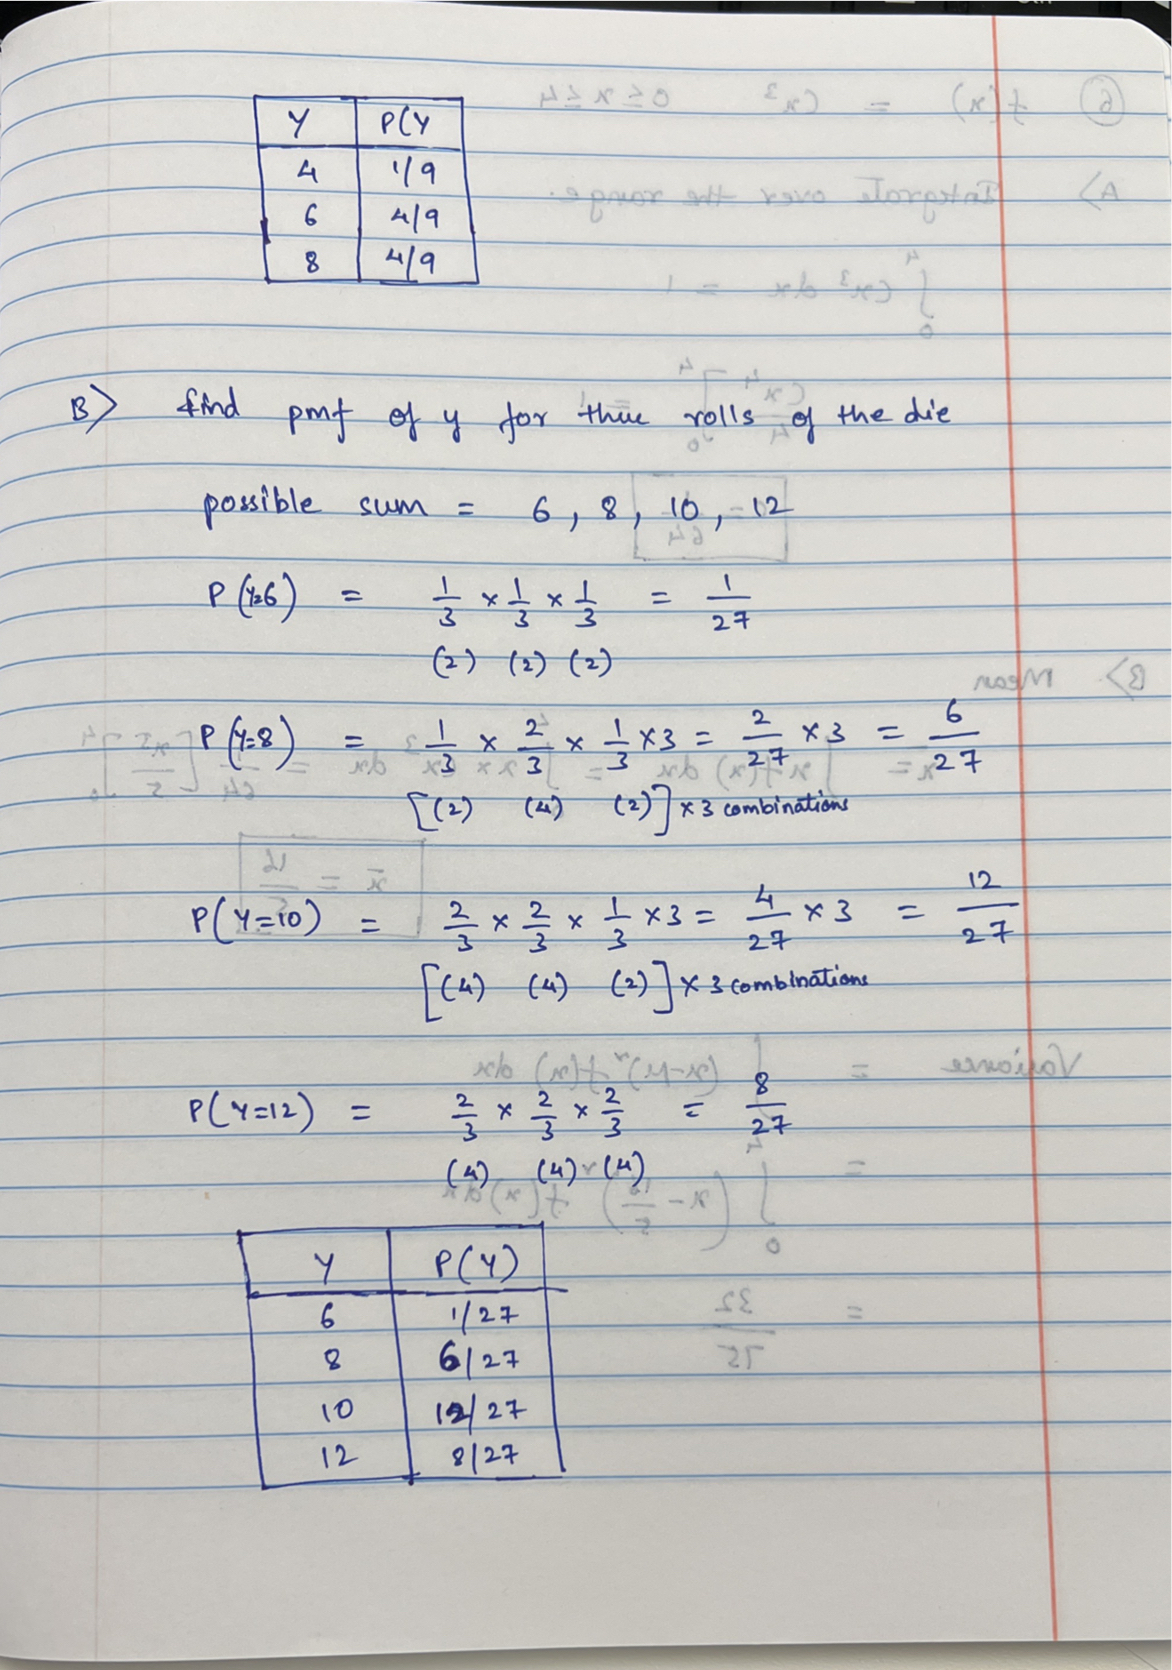 Y P(Y
4 1/9
6 4/9
8 4/9
B> find pmf of y for three rolls of the die
possible sum = 6, 8, 10, 12
P(Y=6) = 1/3 × 1/3 × 1/3 = 1/27
(2) (2) (2)
P(Y=8) = 1/3 × 2/3 × 1/3 × 3 = 2/27 × 3 = 6/27
[(2) (4) (2)] × 3 combinations
P(Y=10) = 2/3 × 2/3 × 1/3 × 3 = 4/27 × 3 = 12/27
[(4) (4) (2)] × 3 combinations
P(Y=12) = 2/3 × 2/3 × 2/3 = 8/27
(4) (4) (4)
Y P(Y)
6 1/27
8 6/27
10 12/27
12 8/27